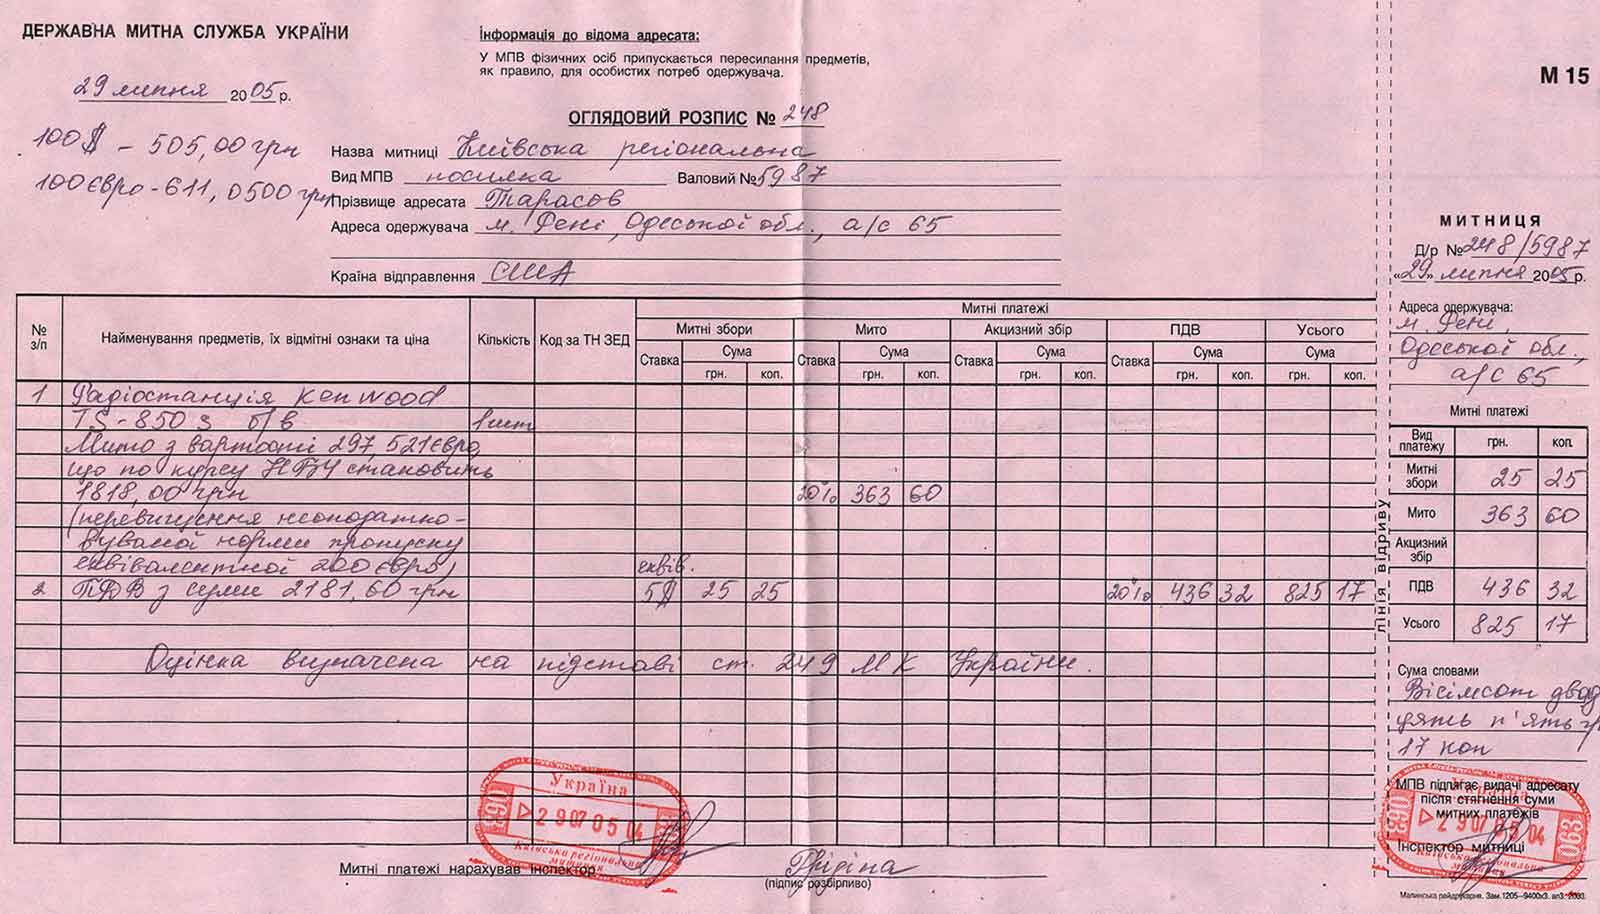 ДЕРЖАВНА МИТНА СЛУЖБА УКРАЇНИ
29 липня 2005 р.
100$ – 505,00 грн
100 євро - 611,0500 грн
Інформація до відома адресата:
У МПВ фізичних осіб припускається пересилання предметів,
як правило, для особистих потреб одержувача.
М 15
ОГЛЯДОВИЙ РОЗПИС № 248
Назва митниці Київська регіональна
Вид МПВ посилка Валовий № 5987
Прізвище адресата Тарасов
Адреса одержувача м. Рені, Одеської обл., а/с 65
Країна відправлення США
№ з/п
Найменування предметів, їх відмітні ознаки та ціна
Кількість
Код за ТН ЗЕД
Митні платежі
Митні збори Мито Акцизний збір ПДВ Усього
Ставка Сума Ставка Сума Ставка Сума Ставка Сума Сума
грн. коп. грн. коп. грн. коп. грн. коп. грн. коп.
1 Радіостанція Kenwood
TS-850 S б/в 1 шт
Мито з вартості 297,521 євро,
що по курсу НБУ становить
1818,00 грн 20% 363 60
(перевищення неоподатко-
вуваної норми пропуску
еквівалентної 200 євро) еквів.
2 ПДВ з суми 2181,60 грн 5$ 25 25 20% 436 32 825 17
Оцінка визначена на підставі ст. 249 МК України.
Україна
890 29 07 05 04 063
Київська регіональна
митниця
Митні платежі нарахував інспектор
(підпис розбірливо)
МИТНИЦЯ
Д/р № 248/5987
«29» липня 2005 р.
Адреса одержувача:
м. Рені,
Одеської обл.,
а/с 65
Митні платежі
Вид платежу грн. коп.
Митні збори 25 25
Мито 363 60
Акцизний збір
ПДВ 436 32
Усього 825 17
лінія відриву
Сума словами
Вісімсот двад
цять п'ять гр
17 коп
МПВ підлягає видачі адресату
після стягнення суми
митних платежів
Україна
890 29 07 05 04 063
Київська регіональна
митниця
Інспектор митниці
Малинська райдрукарня. Зам. 1205–9400х3. ап3. 2003.